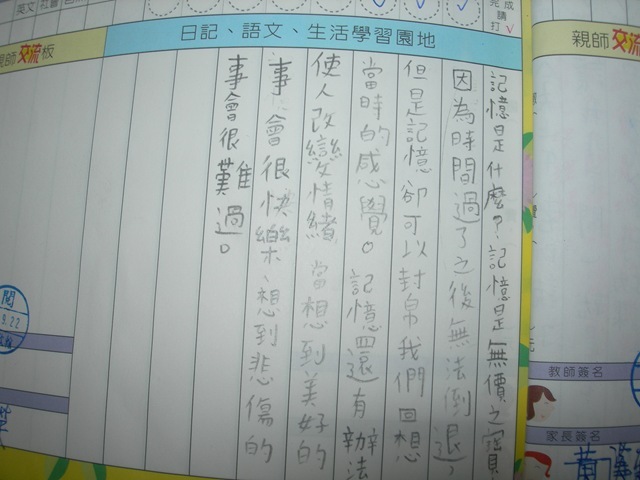 英文
社會
完成
請
打√
日記、語文、生活學習園地
親師交流
記憶是什麼?記憶是無價之寶
因為時間過了之後無法倒退,
但是記憶卻可以幫我們回想
當時的感覺。記憶還有辦法
使人改變情緒 當想到美好的
事會很快樂、想到悲傷的
事會很難過。
師交流板
閱
9.22
教師簽名
家長簽名
黃